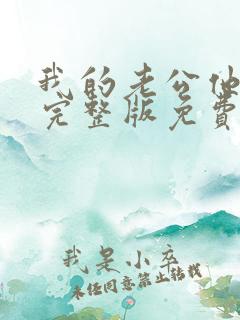 我的老公他
完整版免费
我是小卒
未经同意禁止转载